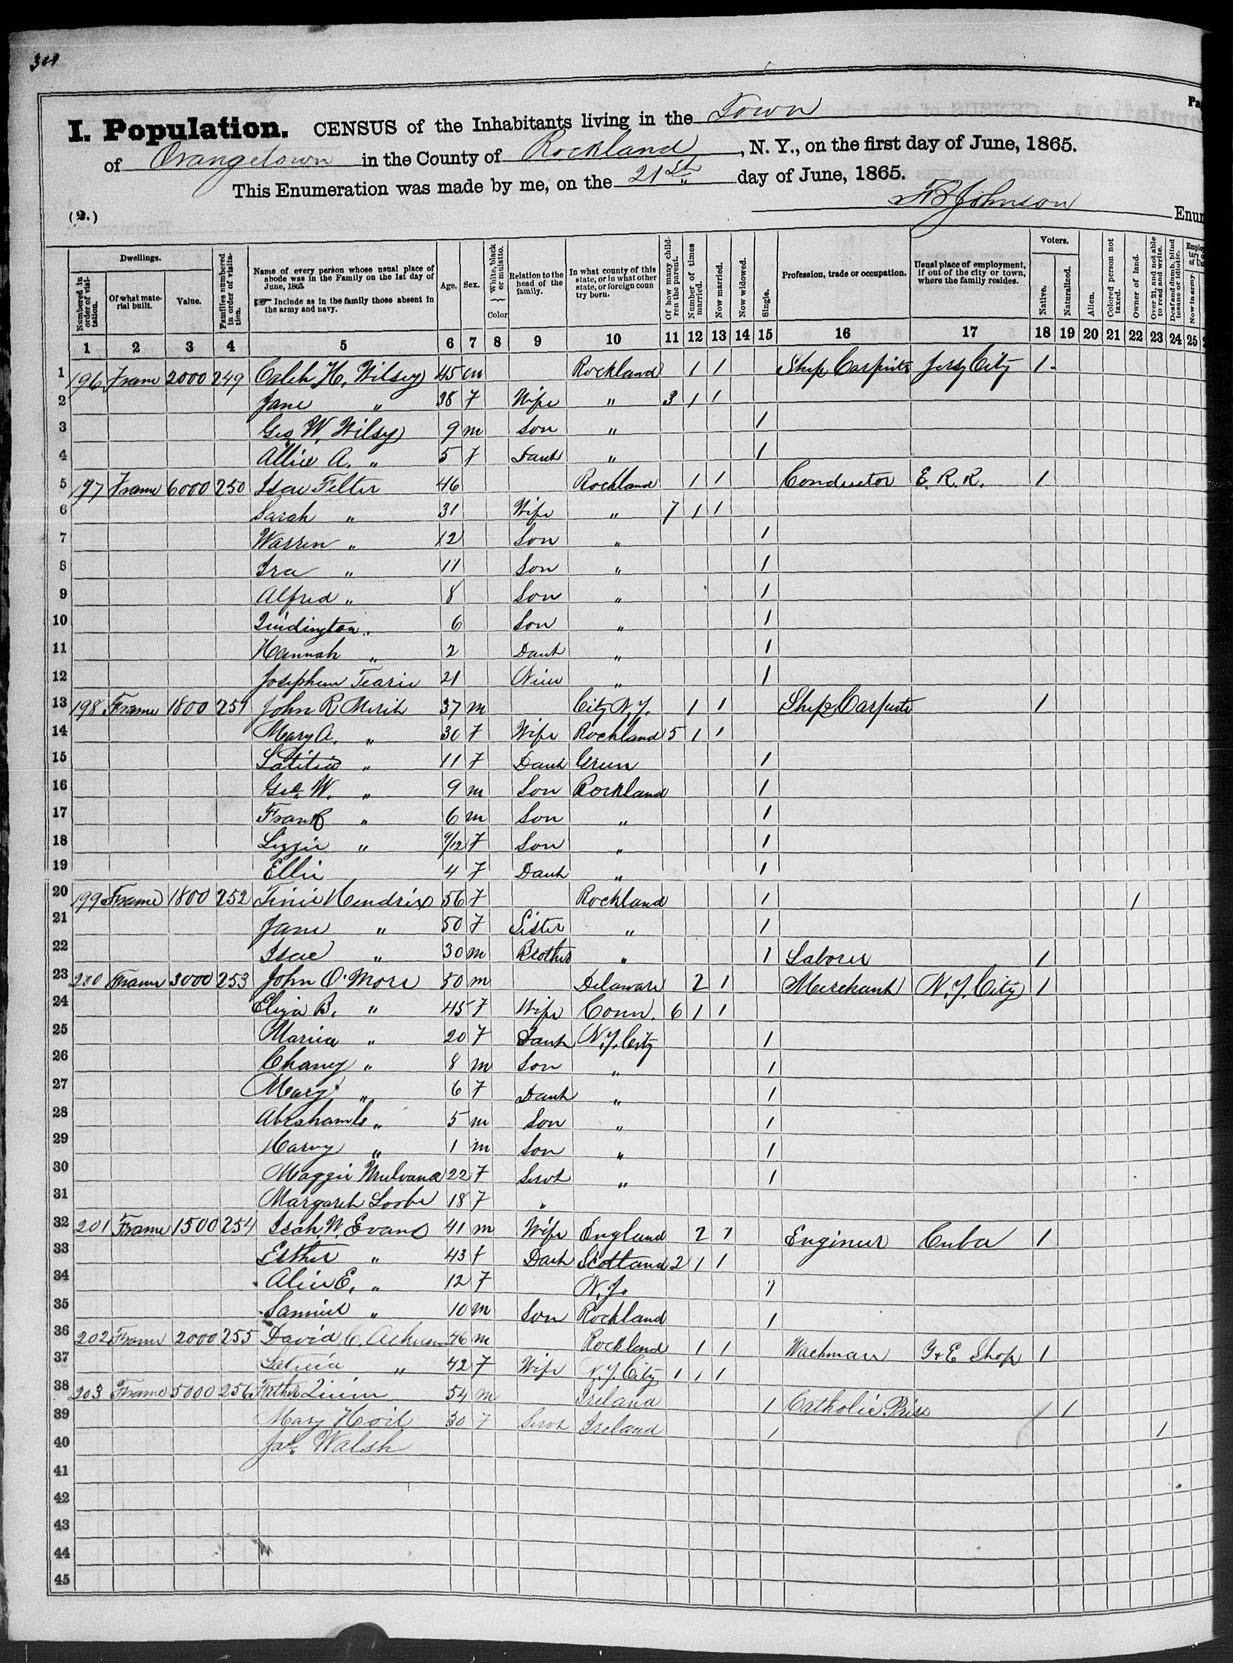 I. Population. CENSUS of the Inhabitants living in the Town
of Orangetown in the County of Rockland, N. Y., on the first day of June, 1865.
This Enumeration was made by me, on the 21st day of June, 1865.
(2.) Johnson Enu
Dwellings. Voters.
Numbered in order of visitation. Of what material built. Value. Families numbered in order of visitation. Name of every person whose usual place of abode was in the Family on the 1st day of June, 1865. Include as in the family those absent in the army and navy. Age. Sex. White, black or mulatto. Color Relation to the head of the family. In what county of this state, or in what other state, or foreign country born. Of how many children the parent. Number of times married. Now married. Now widowed. Single. Profession, trade or occupation. Usual place of employment, if out of the city or town, where the family resides. Native. Naturalized. Alien. Colored person not taxed. Owner of land. Over 21, and not able to read and write. Deaf and dumb, blind insane or idiotic. Now in army
1 2 3 4 5 6 7 8 9 10 11 12 13 14 15 16 17 18 19 20 21 22 23 24 25
1 196 Frame 2000 249 Caleb H. Wilsey 45 m Rockland 1 1 Ship Carpinte Jersy City 1
2 Jane " 38 F Wife " 3 1 1
3 Geo W. Wilsy 9 m Son " 1
4 Allice A. " 5 F Daut " 1
5 197 Frame 6000 250 Isac Felter 46 Rockland 1 1 Conductor E. R. R. 1
6 Sarah " 31 Wife " 7 1 1
7 Warren " 12 Son " 1
8 Ira " 11 Son " 1
9 Alfred " 8 Son " 1
10 " 6 Son " 1
11 Hannah " 2 Daut " 1
12 21 " 1
13 198 Frame 1800 251 John R 37 m City N.Y. 1 1 Ship Carpinte 1
14 Mary A. " 30 F Wife Rockland 5 1 1
15 Latitia " 11 F Daut Green 1
16 Geo. W. " 9 m Son Rockland 1
17 Frank " 6 m Son " 1
18 Lizzie " 9/12 F Son " 1
19 Ellie 4 F Daut " 1
20 199 Frame 1800 252 Hendrix 56 F Rockland 1 1
21 Jane " 50 F Sister " 1
22 Isac " 30 m Brother " 1 Laborer 1
23 200 Frame 3000 253 John O. 50 m Delaware 2 1 Merchant N.Y. City 1
24 Eliza B. " 45 F Wife Conn. 6 1 1
25 Maria " 20 F Daut N.Y. City 1
26 " 8 m Son " 1
27 Mary " 6 F Daut " 1
28 Abraham " 5 m Son " 1
29 Harvy " 1 m Son " 1
30 Maggie 22 F Servt " 1
31 Margaret 18 F "
32 201 Frame 1500 254 W. Evans 41 m Wife England 2 1 Engineer Cuba 1
33 Esther " 43 f Daut Scotland 2 1 1
34 Alice E. " 12 F N.J. 1
35 Samuel " 10 m Son Rockland 1
36 202 Frame 2000 255 David C. 46 m Rockland 1 1 Wachman Shop 1
37 Leticia " 42 F Wife N.Y. City 1 1 1
38 203 Frame 5000 256 Father Quinn 54 m Ireland 1 Catholic 1
39 Mary 30 F Servt Ireland 1 1
40 Walsh
41
42
43
44
45